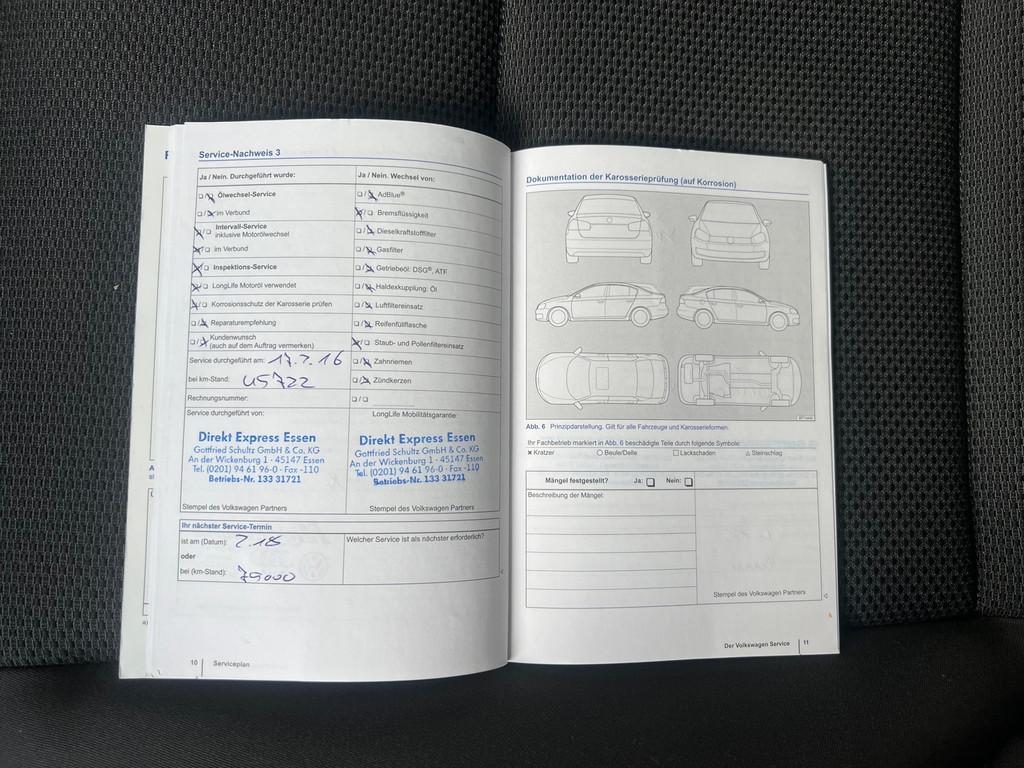 Service-Nachweis 3
Ja / Nein. Durchgeführt wurde:
Ölwechsel-Service
im Verbund
Intervall-Service
inklusive Motorölwechsel
im Verbund
Inspektions-Service
LongLife Motoröl verwendet
Korrosionsschutz der Karosserie prüfen
Reparaturempfehlung
Kundenwunsch
(auch auf dem Auftrag vermerken)
Service durchgeführt am: 17.7.16
bei km-Stand: 45722
Rechnungsnummer:
Ja / Nein. Wechsel von:
AdBlue®
Bremsflüssigkeit
Dieselkraftstofffilter
Gasfilter
Getriebeöl: DSG®, ATF
Haldexkupplung: Öl
Luftfiltereinsatz
Reifenfüllflasche
Staub- und Pollenfiltereinsatz
Zahnriemen
Zündkerzen
Service durchgeführt von:
Direkt Express Essen
Gottfried Schultz GmbH & Co. KG
An der Wickenburg 1 · 45147 Essen
Tel. (0201) 94 61 96-0 · Fax -110
Betriebs-Nr. 133 31721
Stempel des Volkswagen Partners
LongLife Mobilitätsgarantie:
Direkt Express Essen
Gottfried Schultz GmbH & Co. KG
An der Wickenburg 1 · 45147 Essen
Tel. (0201) 94 61 96-0 · Fax -110
Betriebs-Nr. 133 31721
Stempel des Volkswagen Partners
Ihr nächster Service-Termin
ist am (Datum): 7.18
oder
bei (km-Stand): 79000
Welcher Service ist als nächster erforderlich?
10 Serviceplan
Dokumentation der Karosserieprüfung (auf Korrosion)
Abb. 6 Prinzipdarstellung. Gilt für alle Fahrzeuge und Karosserieformen.
Ihr Fachbetrieb markiert in Abb. 6 beschädigte Teile durch folgende Symbole:
× Kratzer ○ Beule/Delle □ Lackschaden △ Steinschlag
Mängel festgestellt? Ja: □ Nein: □
Beschreibung der Mängel:
Stempel des Volkswagen Partners
Der Volkswagen Service 11